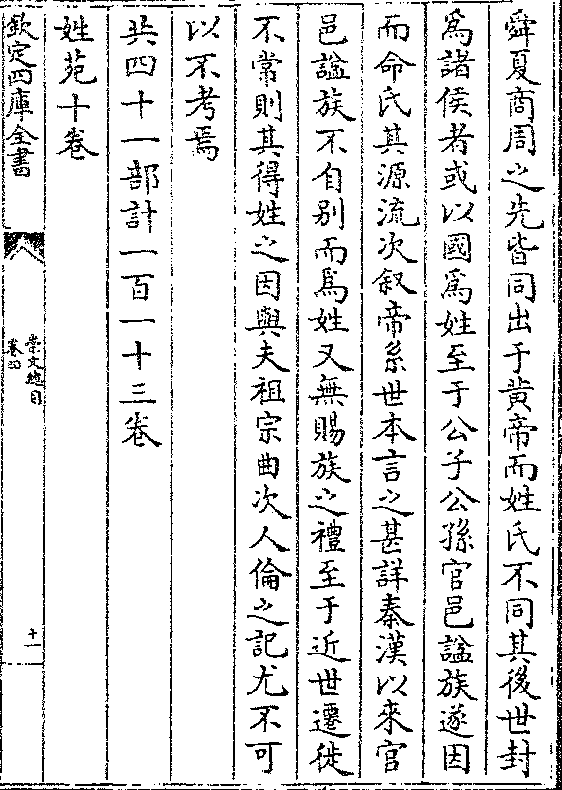 舜夏商周之先皆同出于黄帝而姓氏不同其後世封
爲諸侯者或以國爲姓至于公子公孫官邑諡族遂因
而命氏其源流次叙帝系世本言之甚詳秦漢以來官
邑諡族不自别而爲姓又無賜族之禮至于近世遷徙
不常則其得姓之因與夫祖宗曲次人倫之記尤不可
以不考焉
共四十一部計一百一十三卷
姓苑十卷
欽定四庫全書
崇文總目
卷四
十一